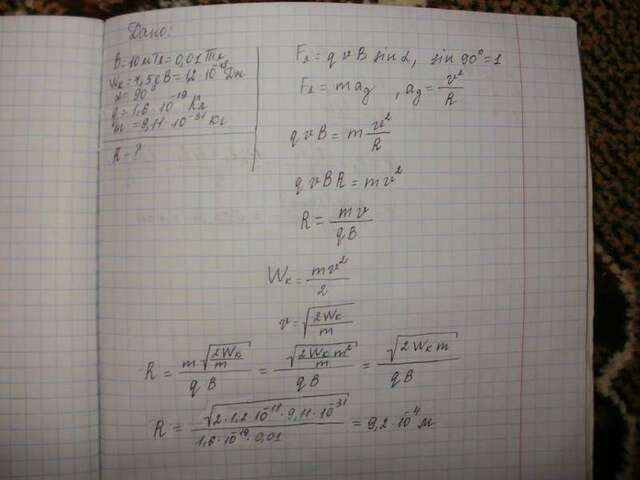 Дано:
B=10мТл=0,01Тл
Wк=7,5эВ=1,2·10⁻¹⁸Дж
α=90°
q=1,6·10⁻¹⁹Кл
m=9,11·10⁻³¹Кг
R-?
Fл=qvB sin α, sin 90°=1
Fл=maц, aц=v²/R
qvB=m v²/R
qvBR=mv²
R=mv/qB
Wк=mv²/2
v=√(2Wк/m)
R=m√(2Wк/m)/qB=√(2Wк m²/m)/qB=√(2Wк m)/qB
R=√(2·1,2·10⁻¹⁸·9,11·10⁻³¹)/1,6·10⁻¹⁹·0,01=9,2·10⁻⁴м